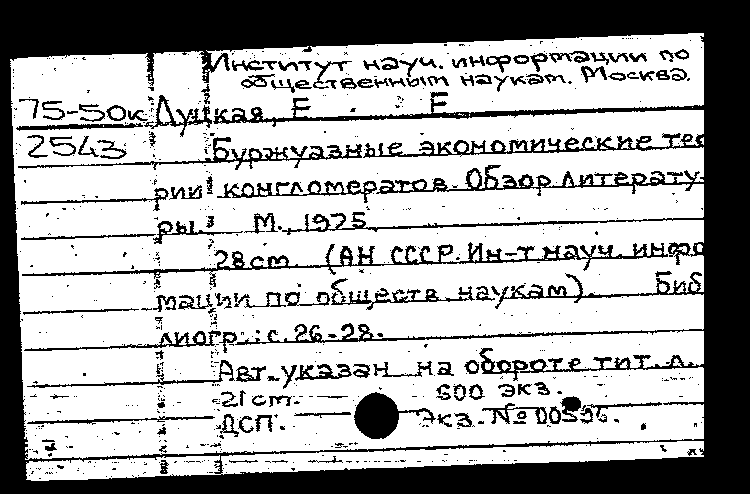 Институт науч. информации по
общественным наукам. Москва.
75-50к Луцкая, Е Е
2543 Буржуазные экономические тео
рии конгломератов. Обзор литерату-
ры. М., 1975.
28 cm. (АН СССР. Ин-т науч. инфо
мации по обществ. наукам). Биб
лиогр.: с. 26-28.
Авт. указан на обороте тит. л.
21 cm. 600 экз.
ДСП. Экз. №